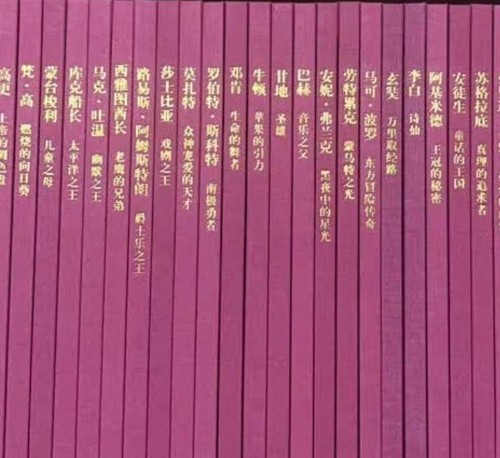 高更 上帝的调色盘
梵·高 燃烧的向日葵
蒙台梭利 儿童之母
库克船长 太平洋之王
马克·吐温 幽默之王
西雅图酋长 老鹰的兄弟
路易斯·阿姆斯特朗 爵士乐之王
莎士比亚 戏剧之王
莫扎特 众神宠爱的天才
罗伯特·斯科特 南极勇者
邓肯 生命的舞者
牛顿 苹果的引力
甘地 圣雄
巴赫 音乐之父
安妮·弗兰克 黑夜中的星光
劳特累克 蒙马特之光
马可·波罗 东方冒险传奇
玄奘 万里取经路
李白 诗仙
阿基米德 王冠的秘密
安徒生 童话的王国
苏格拉底 真理的追求者